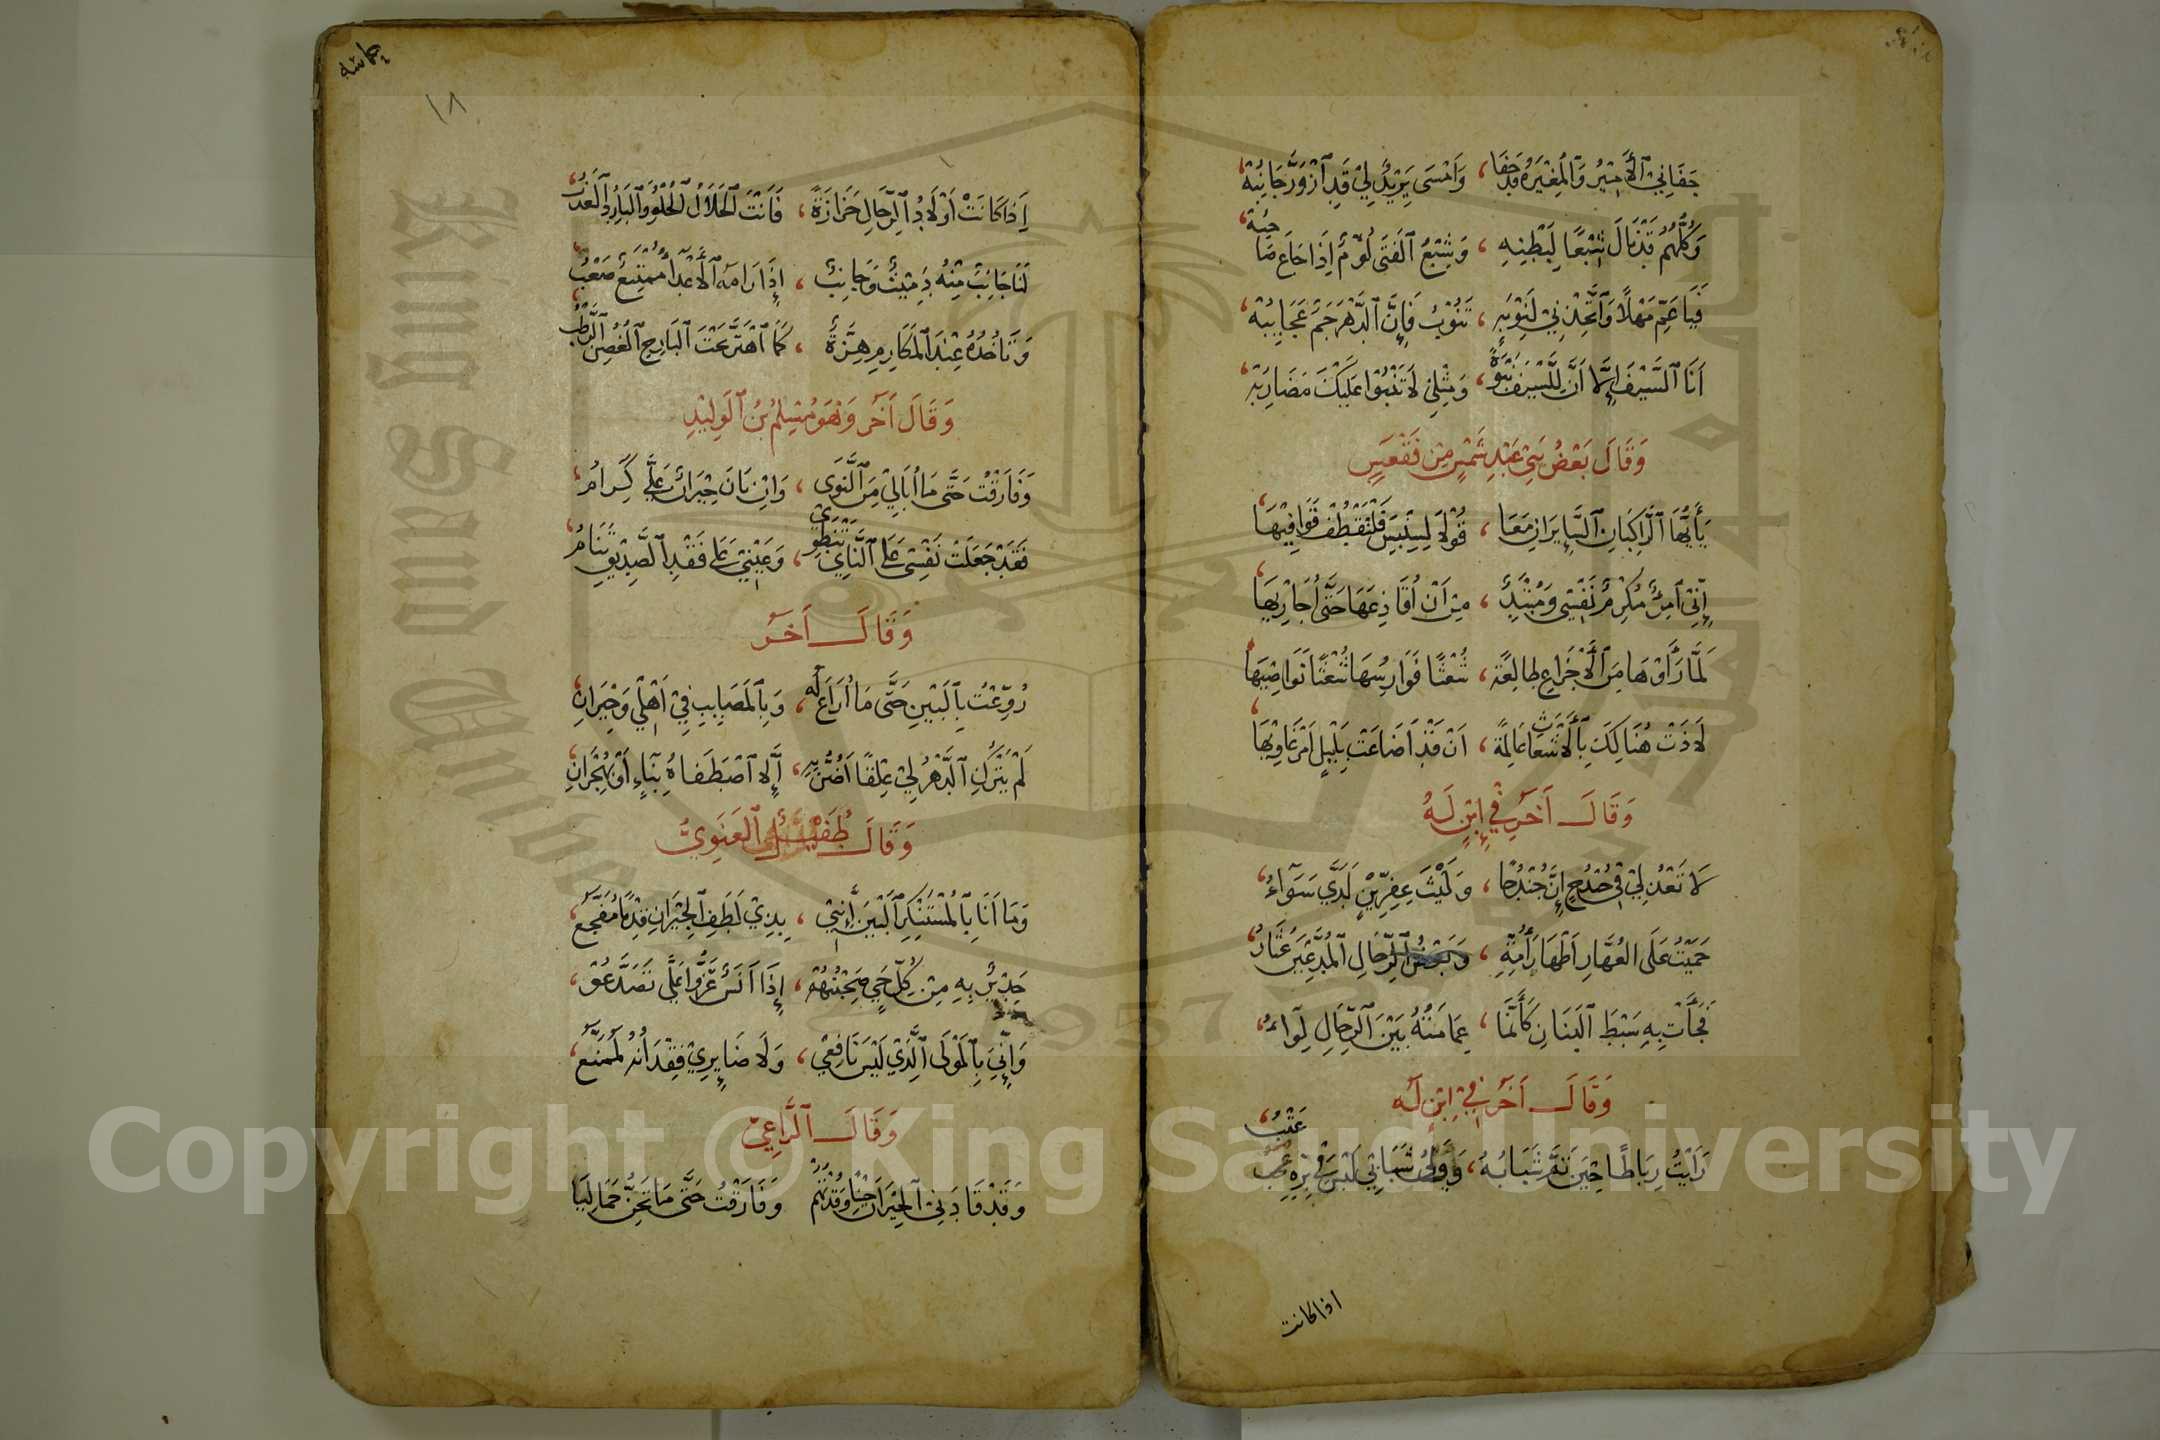 جَفَانِي ٱلْأَمِيرُ وَٱلْمُغِيرَةُ قَدْ جَفَا ، وَأَمْسَى يَزِيدُ لِي قَدِ ٱزْوَرَّ جَانِبُهْ
وَكُلُّهُمُ قَدْ نَالَ شِبْعًا لِبَطْنِهِ ، وَشِبْعُ ٱلْفَتَى لُؤْمٌ إِذَا جَاعَ صَاحِبُهْ
فَيَا عَمِّ مَهْلًا وَٱتَّخِذْنِي لِنَوْبَةٍ ، تَنُوبُ فَإِنَّ ٱلدَّهْرَ جَمٌّ عَجَايِبُهْ
أَنَا ٱلسَّيْفُ إِلَّا أَنَّ لِلسَّيْفِ نَبْوَةً ، وَمِثْلِي لَا تَنْبُوا عَلَيْكَ مَضَارِبُهْ
وَقَالَ بَعْضُ بَنِي عَبْدِ شَمْسٍ مِنْ فَقْعَسٍ
يَأَيُّهَا ٱلرَّاكِبَانِ ٱلسَّايِرَانِ مَعَا ، قُولَا لِسِنْبِسَ فَلْتَقْطُفْ قَوَافِيهَا
إِنِّي ٱمْرُؤٌ مُكْرِمٌ نَفْسِي وَمُتَّئِدٌ ، مِنْ أَنْ أُقَاذِعَهَا حَتَّى أُجَازِيهَا
لَمَّا رَأَوْهَا مِنَ ٱلْأَجْزَاعِ طَالِعَةً ، شُعْثًا فَوَارِسُهَا شُعْثًا نَوَاصِيهَا
لَاذَتْ هُنَالِكَ بِٱلْأَشْعَاثِ عَالِمَةً ، أَنْ قَدْ أَضَاعَتْ بِلَيْلٍ أَمْرَ غَاوِيهَا
وَقَالَ آخَرُ فِي إِبْنٍ لَهُ
لَا تَعْذُلِي فِي حُنْدُجٍ إِنَّ حُنْدُجًا ، وَلَيْثَ عِفِرِّينٍ لَدَيَّ سَوَآءُ
حَمَيْتُ عَلَى العُهَّارِ أَطْهَارَ أُمِّهِ ، وَبَعْضُ ٱلرِّجَالِ ٱلْمُدَّعِينَ غُثَاءُ
فَجَأَتْ بِهِ سَبْطَ ٱلْبَنَانِ كَأَنَّمَا ، عِمَامَتُهُ بَيْنَ ٱلرِّجَالِ لِوَآءُ
وَقَالَ آخَرُ فِي إِبْنٍ لَهُ
رَأَيْتُ رِبَاطًا حِينَ تَمَّ شَبَابُهُ ، وَوَلَّى شَبَابِي لَيْسَ فِي بِرِّهِ عَتْبُ
عَتْبُ
اذا كانت
حماسه
١٨
إِذَا كَانَتْ أَوْلَادُ ٱلرِّجَالِ حَزَازَةً ، فَأَنْتَ ٱلْحَلَالُ ٱلْحُلْوُ وَٱلْبَارِدُ ٱلْعَذْبُ
لَنَا جَانِبٌ مِنْهُ دَمِيثٌ وَجَانِبٌ ، إِذَا رَامَهُ ٱلْأَعْدَاءُ مُمْتَنِعٌ صَعْبُ
وَتَأْخُذُهُ عِنْدَ ٱلْمَكَارِمِ هِزَّةٌ ، كَمَا ٱهْتَزَّ تَحْتَ ٱلْبَارِحِ ٱلْغُصُنُ ٱلرَّطْبُ
وَقَالَ آخَرُ وَهُوَ مُسْلِمُ بْنُ ٱلْوَلِيدِ
وَفَارَقْتُ حَتَّى مَا أُبَالِي مِنَ ٱلنَّوَى ، وَإِنْ بَانَ جِيرَانٌ عَلَيَّ كِرَامُ
فَقَدْ جَعَلَتْ نَفْسِي عَلَى ٱلنَّايِ تَنْطَوِي ، وَعَيْنِي عَلَى فَقْدِ ٱلصَّدِيقِ تَنَامُ
وَقَالَ آخَرُ
رُوِّعْتُ بِٱلْبَيْنِ حَتَّى مَا أُرَاعُ لَهُ ، وَبِٱلْمَصَايِبِ فِي أَهْلِي وَجِيرَانِي
لَمْ يَتْرُكِ ٱلدَّهْرُ لِي عِلْقًا أَضَنُّ بِهِ ، إِلَّا ٱصْطَفَاهُ بِنَاءٍ أَوْ بِهِجْرَانِ
وَقَالَ طُفَيْلُ ٱلْغَنَوِيُّ
وَمَا أَنَا بِٱلْمُسْتَنْكِرِ ٱلْبَيْنَ إِنَّنِي ، بِذِي لَطَفِ ٱلْجِيرَانِ قِدْمًا مُفَجَّعُ
جَدِيرٌ بِهِ مِنْ كُلِّ حَيٍّ صَحِبْتُهُمْ ، إِذَا أَنَسٌ عَزُّوا عَلَيَّ تَصَدَّعُوا
وَإِنِّيَ بِٱلْمَوْلَى ٱلَّذِي لَيْسَ نَافِعِي ، وَلَا ضَايِرِي فِقْدَانُهُ لَمُمَتَّعُ
وَقَالَ ٱلرَّاعِي
وَقَدْ قَادَنِي ٱلْجِيرَانُ حِينًا وَقُدْتُهُمْ وَفَارَقْتُ حَتَّى مَا تَحِنُّ جِمَالِيَا
Copyright © King Saud University
1957